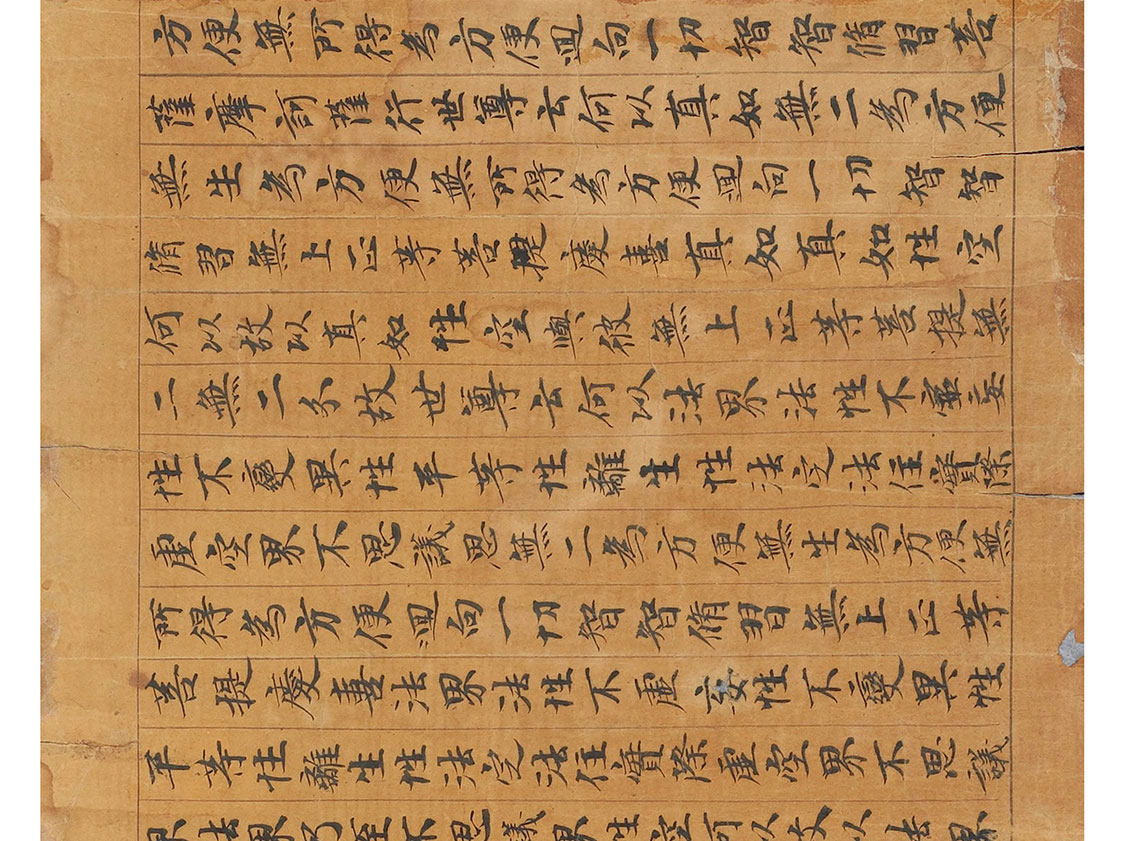 方便無所得為方便迴向一切智智脩習菩
薩摩訶薩行世尊云何以真如無二為方便
無生為方便無所得為方便迴向一切智智
脩習無上正等菩提慶喜真如真如性空
何以故以真如性空與彼無上正等菩提無
二無二分故世尊云何以法界法性不虛妄
性不變異性平等性離生性法定法住實際
虛空界不思議思無二為方便無生為方便無
所得為方便迴向一切智智脩習無上正等
菩提慶喜法界法性不虛妄性不變異性
平等性離生性法定法住實際虛空界不思議
界法界乃至不思議界性空何以故以法界